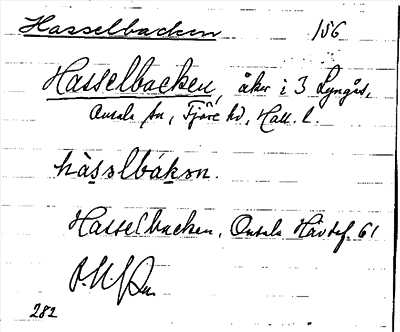 Hasselbacken 156
Hasselbacken, åker i 3 Lyngås,
Onsala sn, Fjäre hd, Hall. l.
hàsslbákɘn.
Hasselbacken, Onsala Hävdef. 61
282